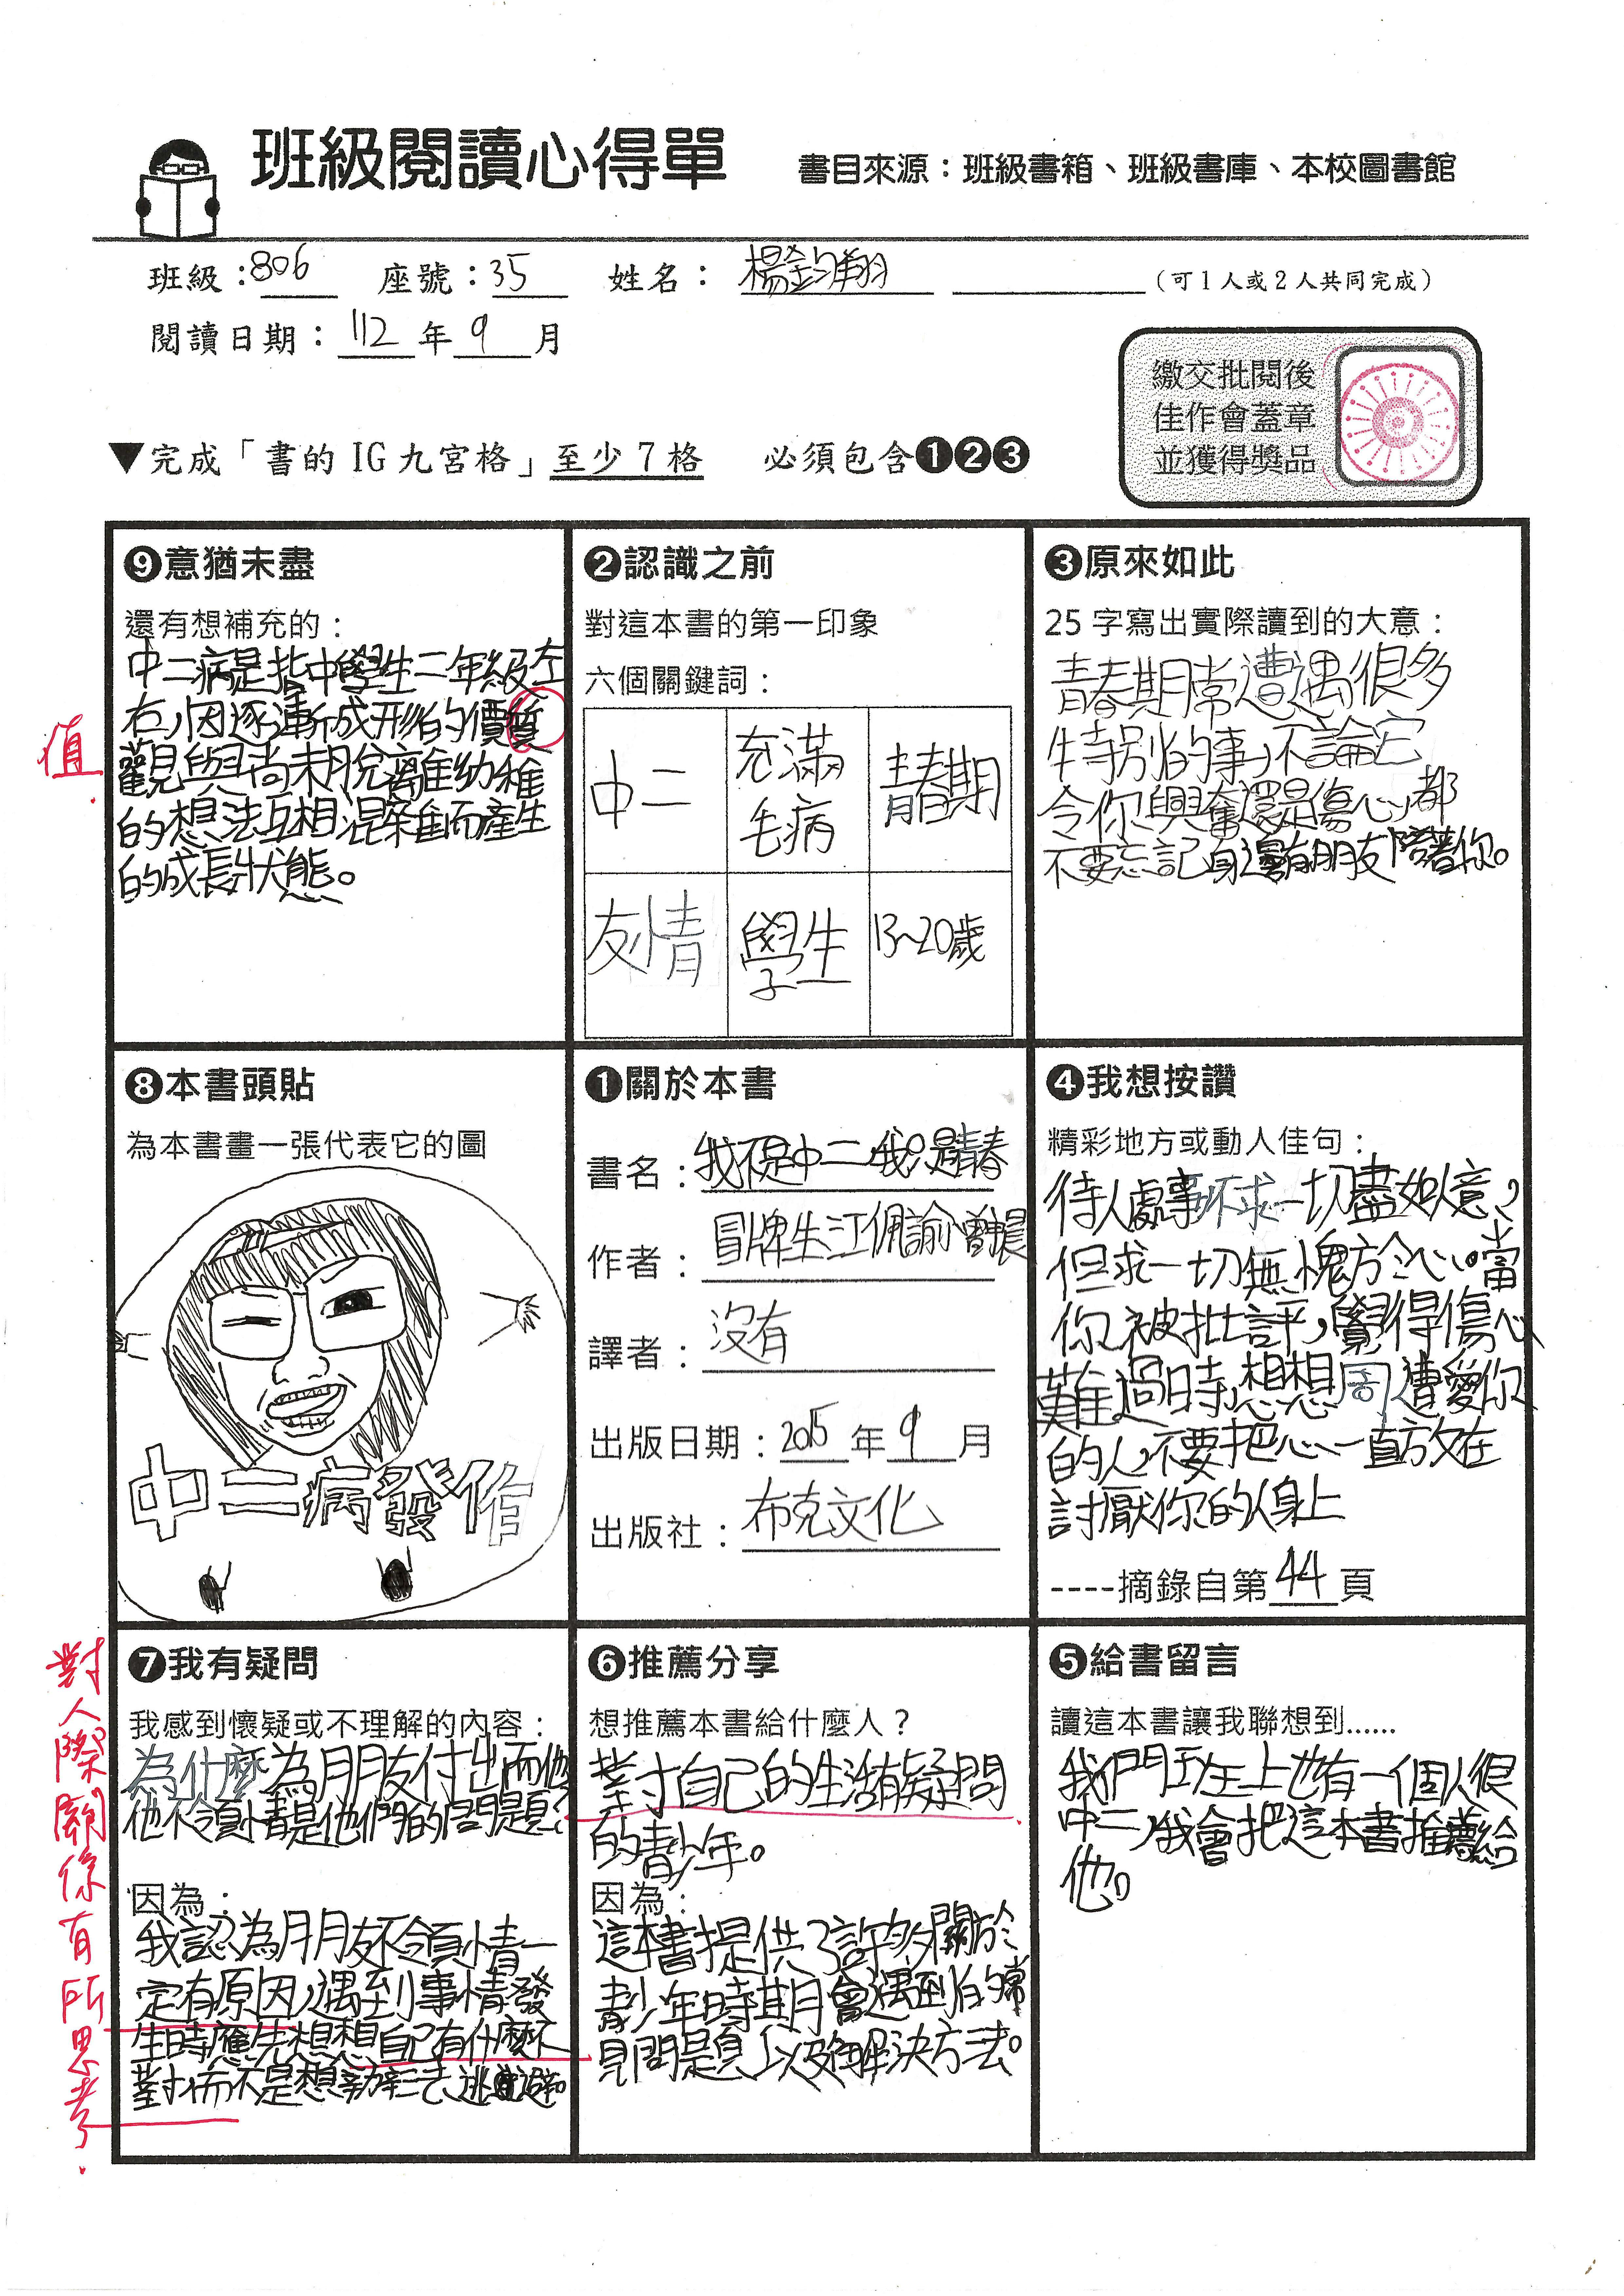 班級閱讀心得單
書目來源：班級書箱、班級書庫、本校圖書館
班級：806 座號：35 姓名：楊鈞翔 （可1人或2人共同完成）
閱讀日期：112年9月
繳交批閱後
佳作會蓋章
並獲得獎品
▼完成「書的 IG 九宮格」至少 7 格 必須包含❶❷❸
❾意猶未盡
還有想補充的：
中二病是指中學生二年級左
右，因逐漸成形的價質
觀與尚未脫離幼稚
的想法互相混雜而產生
的成長狀態。
值
❷認識之前
對這本書的第一印象
六個關鍵詞：
中二 充滿毛病 青春期
友情 學生 13~20歲
❸原來如此
25 字寫出實際讀到的大意：
青春期常遭遇很多
特別的事，不論它
令你興奮還是傷心，都
不要忘記身邊有朋友陪著你。
❽本書頭貼
為本書畫一張代表它的圖
中二病發作
❶關於本書
書名：我不是中二，我只是青春
作者：冒牌生江佩諭
譯者：沒有
出版日期：2015年9月
出版社：布克文化
❹我想按讚
精彩地方或動人佳句：
待人處事不求一切盡如人意，
但求一切無愧於心。當
你被批評，覺得傷心
難過時，想想周遭愛你
的人，不要把心一直放在
討厭你的人身上
----摘錄自第44頁
❼我有疑問
我感到懷疑或不理解的內容：
為什麼為朋友付出而他
他不領情是他們的問題？
因為：
我認為朋友不領情一
定有原因，遇到事情發
生時應先想想自己有什麼不
對，而不是想辦法逃避
對人際關係有所思考.
❻推薦分享
想推薦本書給什麼人？
對自己的生活有疑問
的青少年。
因為：
這本書提供了許多關於
青少年時期會遇到的常
見問題，以及解決方法。
❺給書留言
讀這本書讓我聯想到......
我們班上也有一個人很
中二，我會把這本書推薦給
他。